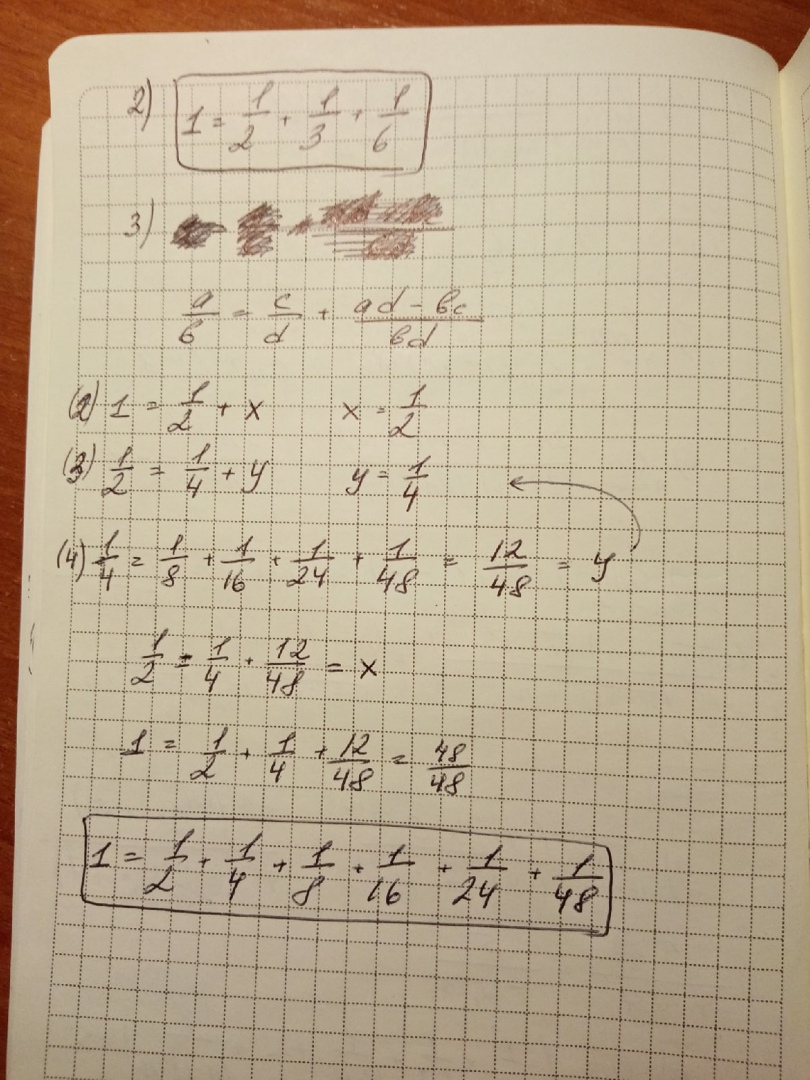 2) 1 = 1/2 + 1/3 + 1/6
3)
a/b = c/d + (ad - bc)/bd
(2) 1 = 1/2 + x x = 1/2
(3) 1/2 = 1/4 + y y = 1/4
(4) 1/4 = 1/8 + 1/16 + 1/24 + 1/48 = 12/48 = y
1/2 = 1/4 + 12/48 = x
1 = 1/2 + 1/4 + 12/48 = 48/48
1 = 1/2 + 1/4 + 1/8 + 1/16 + 1/24 + 1/48